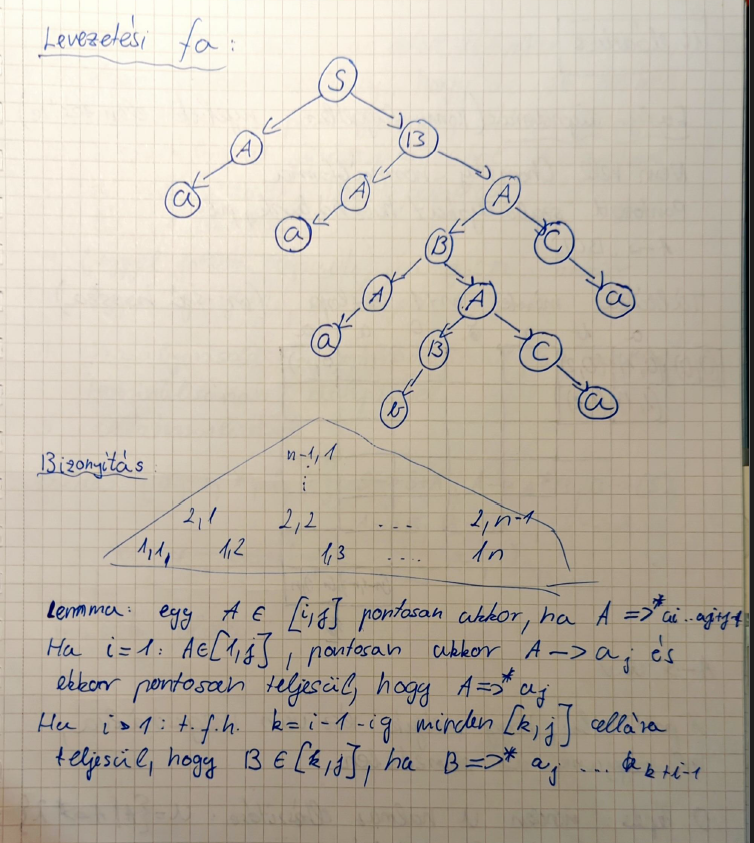 Levezetési fa:
S
A B
a A A
a B C
A A a
a B C
b a
Bizonyítás:
n-1,1
⋮
2,1 2,2 ... 2,n-1
1,1, 1,2 1,3 .... 1n
Lemma: egy A ∈ [i,j] pontosan akkor, ha A =>* ai..
Ha i=1: A∈[1,j], pontosan akkor A -> aj és
ekkor pontosan teljesül, hogy A=>* aj
Ha i>1: t.f.h. k=i-1-ig minden [k,j] cellára
teljesül, hogy B∈[k,j], ha B=>* aj ... k+i-1